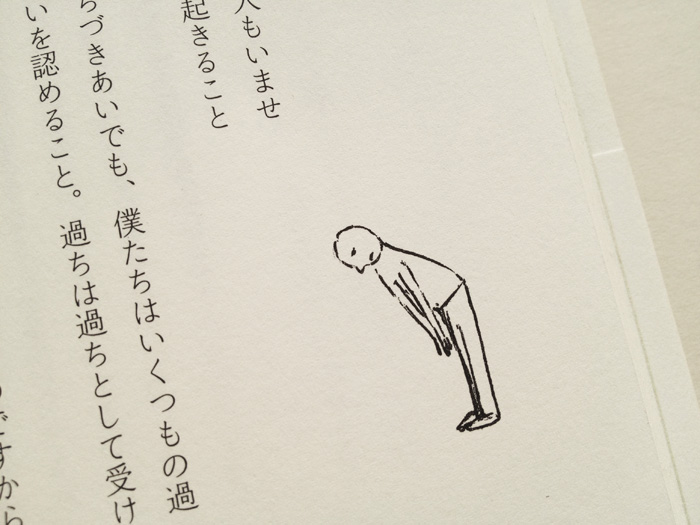 人もいませ
起きること
づきあいでも、僕たちはいくつもの過
いを認めること。過ちは過ちとして受け
ですから